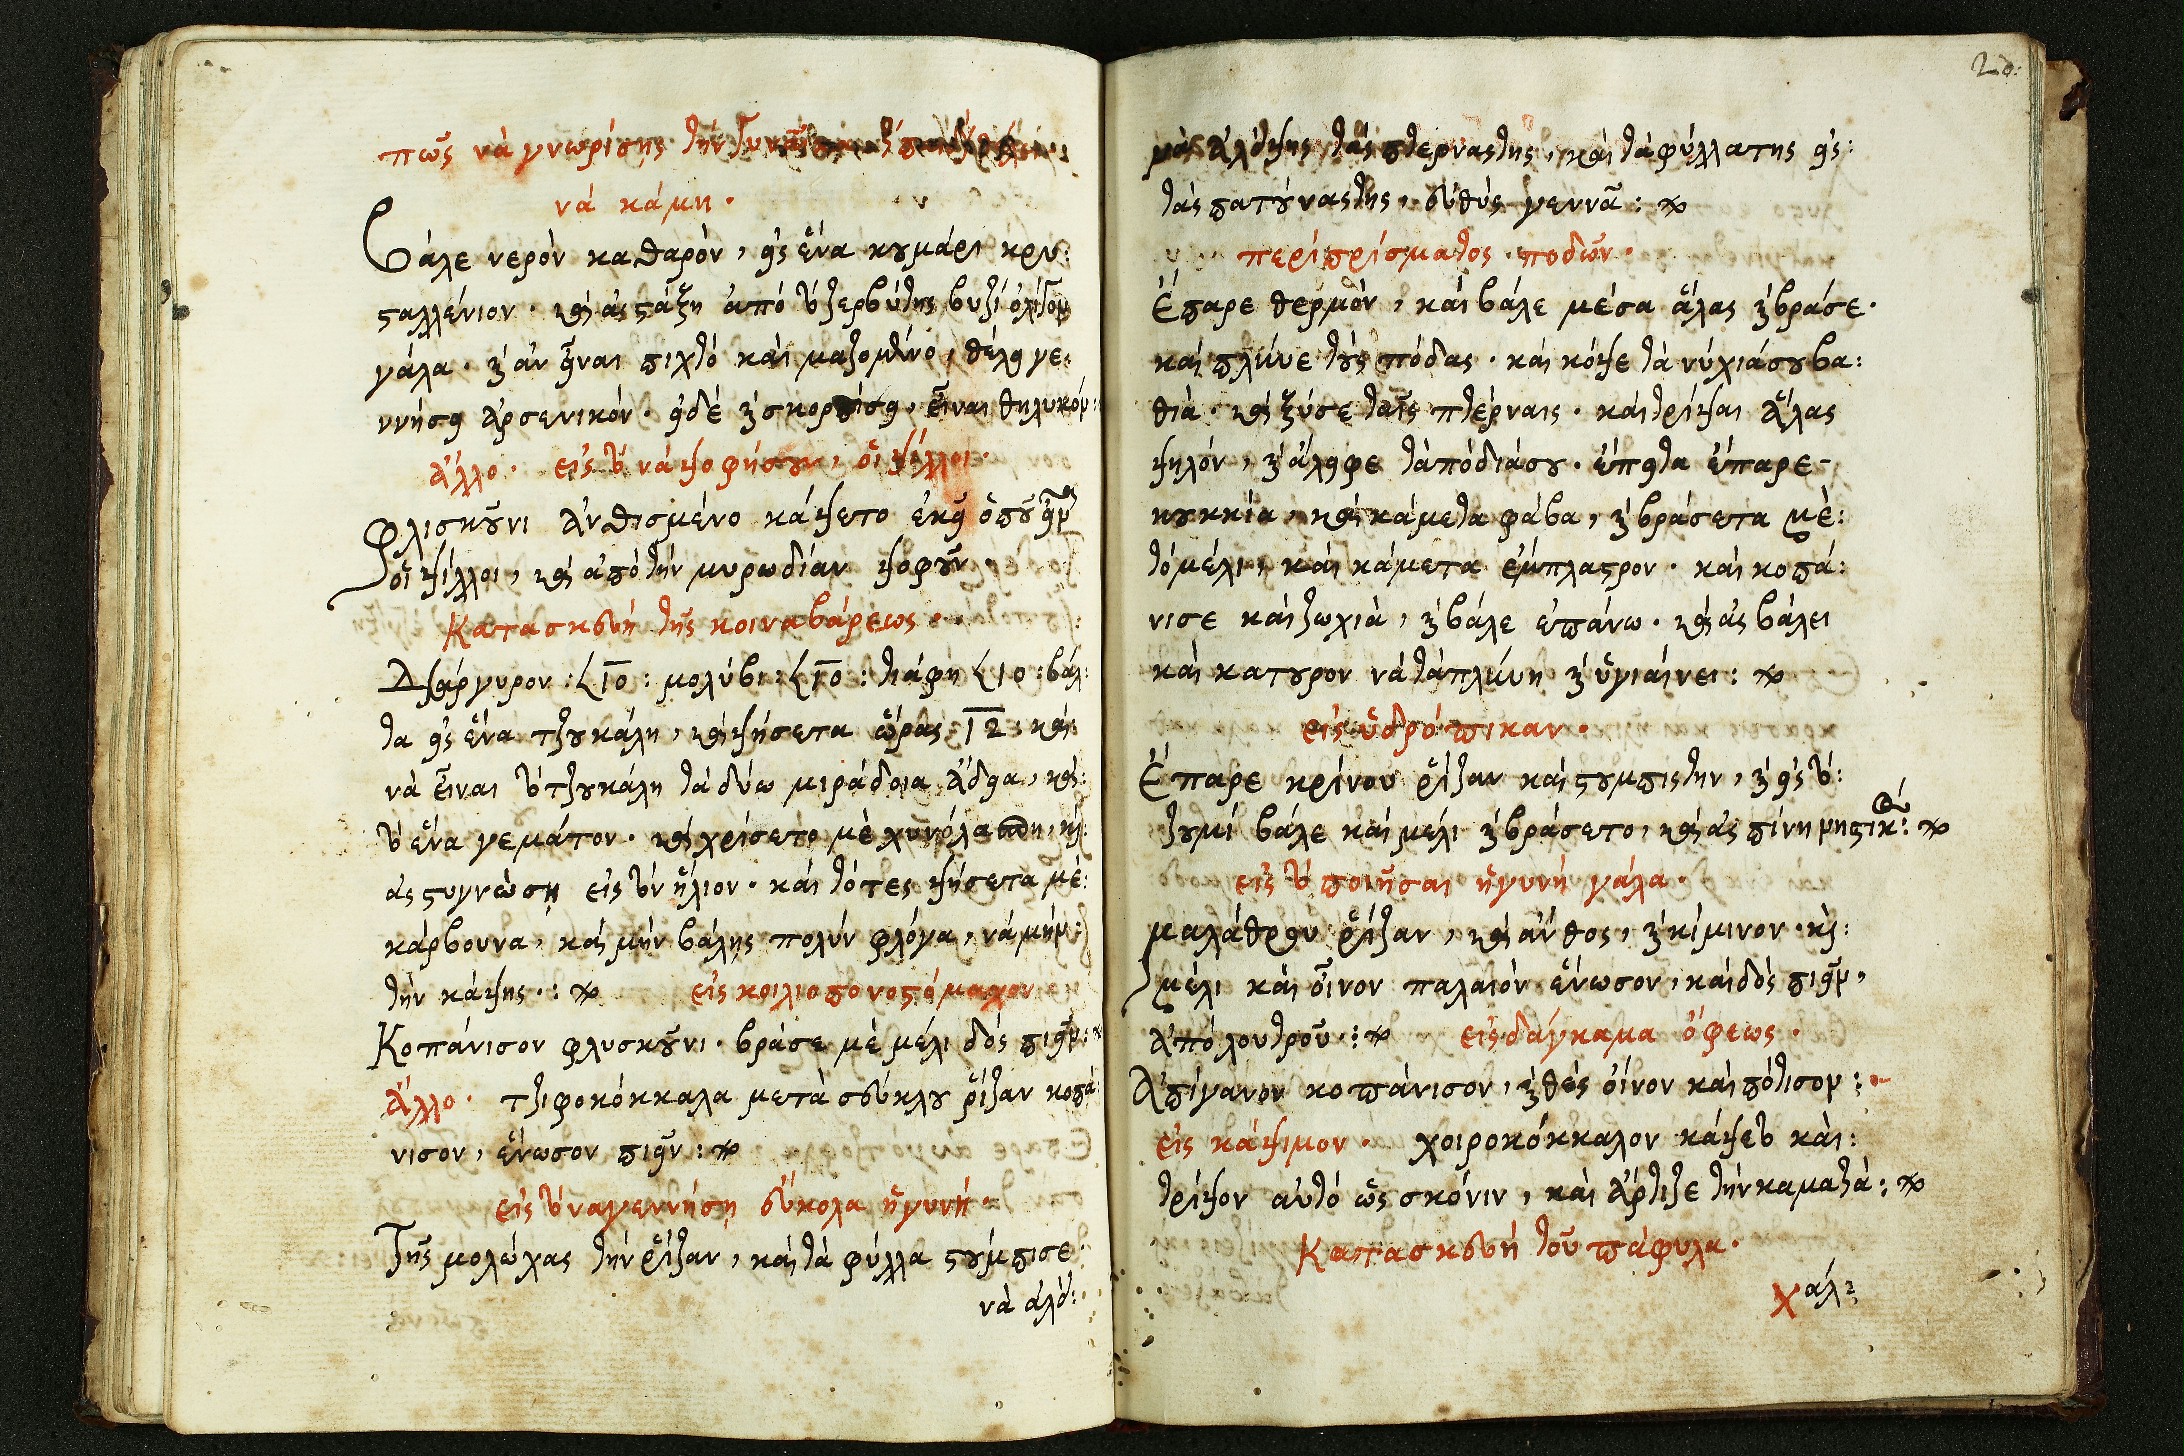 πῶς νὰ γνωρίσης τὴν γυναῖκα
νά κάμη·
Βάλε νερὸν καθαρὸν, εἰς ἕνα κουμάρι κρυ:
σταλλένιον· καὶ ἂς στάξη ἀπό τὸ ζερβύτης βυζί ὀλίγον
γάλα· καὶ ἂν εἶναι πιχτό καὶ μαζομένο, θέλει γε:
ννήσει ἀρσενικόν· εἰδέ καὶ σκορπίσει, εἶναι θηλυκόν:
ἄλλο· εἰς τὸ νάψοφήσουν, οἱ ψύλλοι·
Φλισκοῦνι ἀνθισμένο κάψετο ἐκεῖ ὁποῦ εἶν
οἱ ψίλλοι, καὶ ἀπό τὴν μυρωδίαν ψοφοῦν·
Κατασκευή τῆς κοιναβάρεως·
Διάργυρον: 10: μολύβι: 10: τιάφη 10: βάλ:
τα εἰς ἕνα τζουκάλη, καὶ ψήσετα ὥρας 12 καὶ
νὰ εἶναι τὸ τζουκάλη τὰ δύω μιράδοια ἄδεια, καὶ:
τὸ ἕνα γεμάτον· καὶ χρίσετο μὲ χυνόλασπη, καὶ:
ἂς στυγνώση εἰς τὸν ἥλιον· καὶ τότες ψήσετα μὲ:
κάρβουνα, καὶ μὴν βάλης πολὺν φλόγα, νάμὴν:
τὴν κάψης·: εἰς κοιλιοπονοστόμαχον
Κοπάνισον φλυσκοῦνι· βράσε μὲ μέλι δός πιεῖν:
Ἄλλο· τζιφοκόκκαλα μετὰ σεύκλου ῥίζαν κοπά
νισον, ἕνωσον πιεῖν:
εἰς τὸ ναγεννήση εὔκολα ἡγυνή·
Τῆς μολώχας τὴν ῥίζαν, καὶ τὰ φύλλα στούμπισε
νὰ ἀλεί:
μὰς ἀλείψης τὰς πτερναςτης, καὶ τὰφύλλατης εἰς:
τὰς πατούναςτης, εὐθὺς γεννᾶ:
περὶ πρίσματος ποδῶν·
Ἔπαρε θερμὸν, καὶ βάλε μέσα ἅλας καὶ βράσε·
καὶ πλύνε τοὺς πόδας· καὶ κόψε τὰ νύχιάσου βα:
θιὰ· καὶ ξύσε ταῖς πτέρναις· καὶ τρίψαι ἅλας
ψηλόν, καὶ ἄλειφε τὰπόδιάσου· ἔπειτα ἔπαρε
κουκκία, καὶ κάμετα φάβα, καὶ βράσετα μὲ:
τόμέλι, καὶ κάμετα ἔμπλαστρον· καὶ κοπά:
νισε καὶ ζωχιὰ, καὶ βάλε ἐπάνω· καὶ ἂς βάλει
καὶ κατουρον νὰ τὰπλύνη καὶ ὑγιαίνει:
εἰς ὕδρόπικαν·
Ἔπαρε κρίνου ῥίζαν καὶ στουμπιςτην, καὶ εἰς τὸ:
ζουμί βάλε καὶ μέλι καὶ βράσετο, καὶ ἂς πίνη νηστικ:
εἰς τὸ ποιῆσαι ἡγυνή γάλα·
μαλάθρου ῥίζαν, καὶ ἄνθος, καὶ κίμινον· καὶ:
μέλι καὶ οἶνον παλαιὸν ἕνωσον, καὶ δὸς πιεῖν,
ἀπό λουτροῦ·: εἰς δάγκαμα ὄφεως·
Ἀπίγανον κοπάνισον, καὶ θὲς οἶνον καὶ πότισον:
εἰς κάψιμον· χοιροκόκκαλον κάψετο καὶ:
τρίψον αὐτό ὡς σκόνιν, καὶ ἄρτιζε τὴν καματὰ:
Κατασκευή τοῦ πάφυλα·
χάλ: